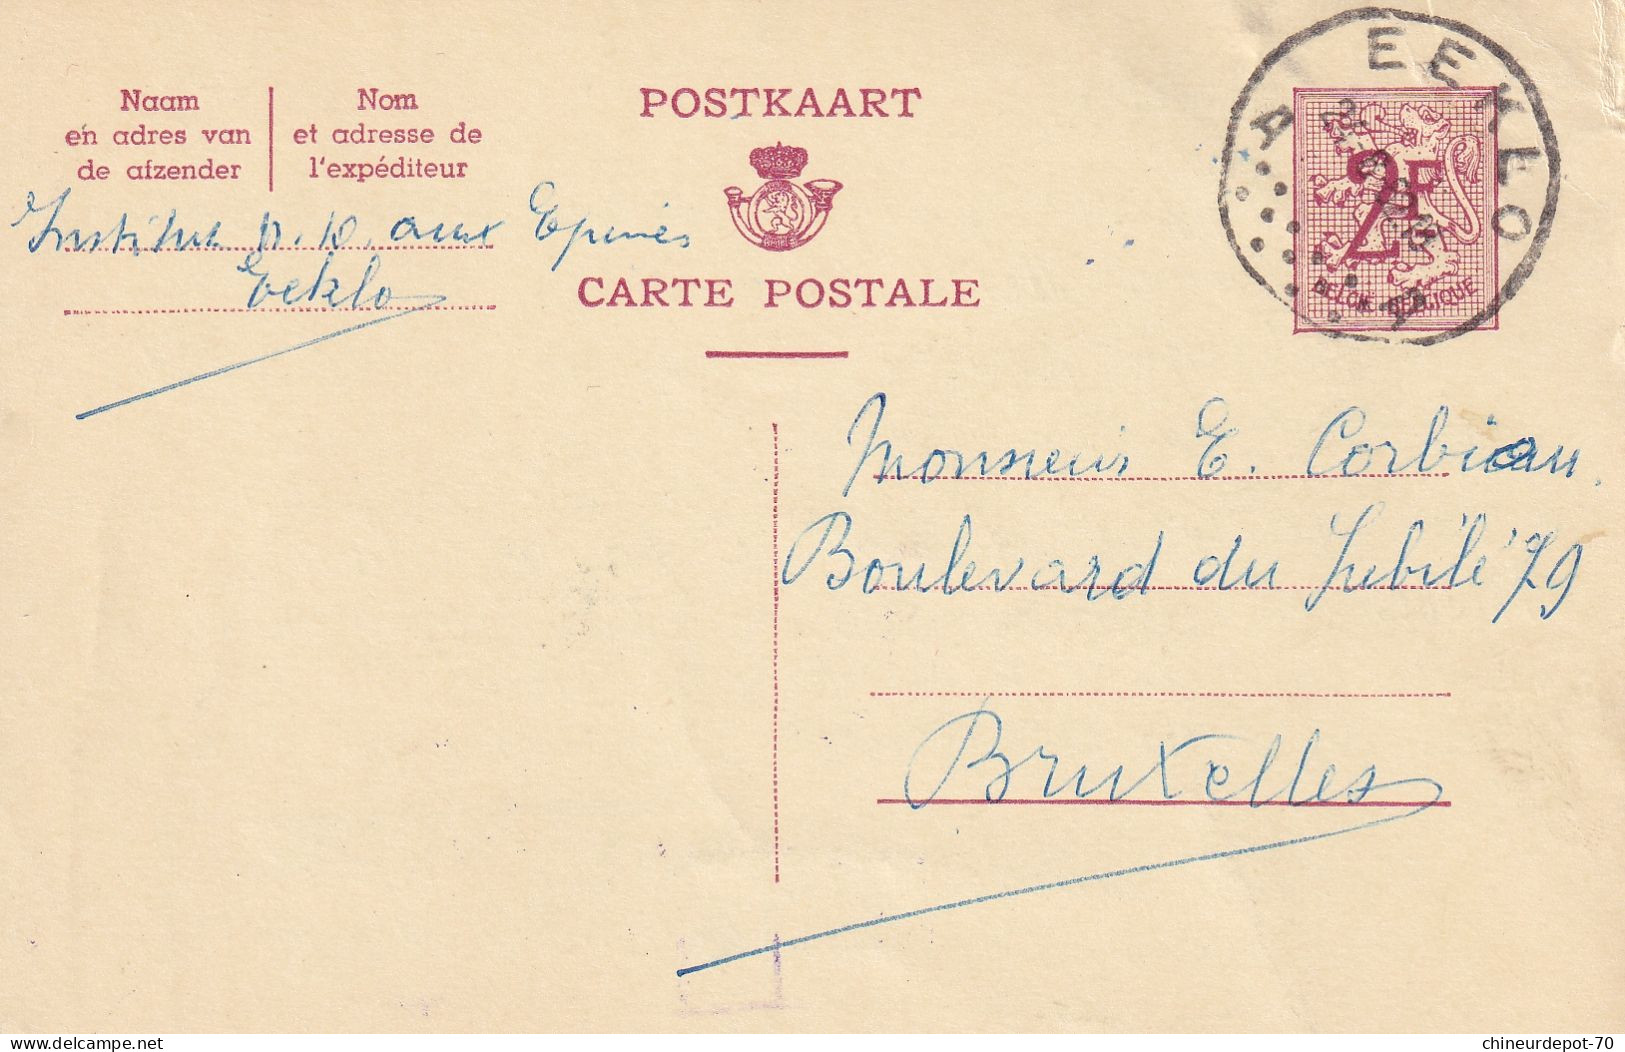 Naam
en adres van
de afzender
Nom
et adresse de
l'expéditeur
POSTKAART
CARTE POSTALE
Institut N. D. aux Epines
Eeklo
A EEKLO A
2F
BELGIE BELGIQUE
Monsieur E. Corbiau.
Boulevard du Jubilé 79
Bruxelles
www.delcampe.net
chineurdepot-70